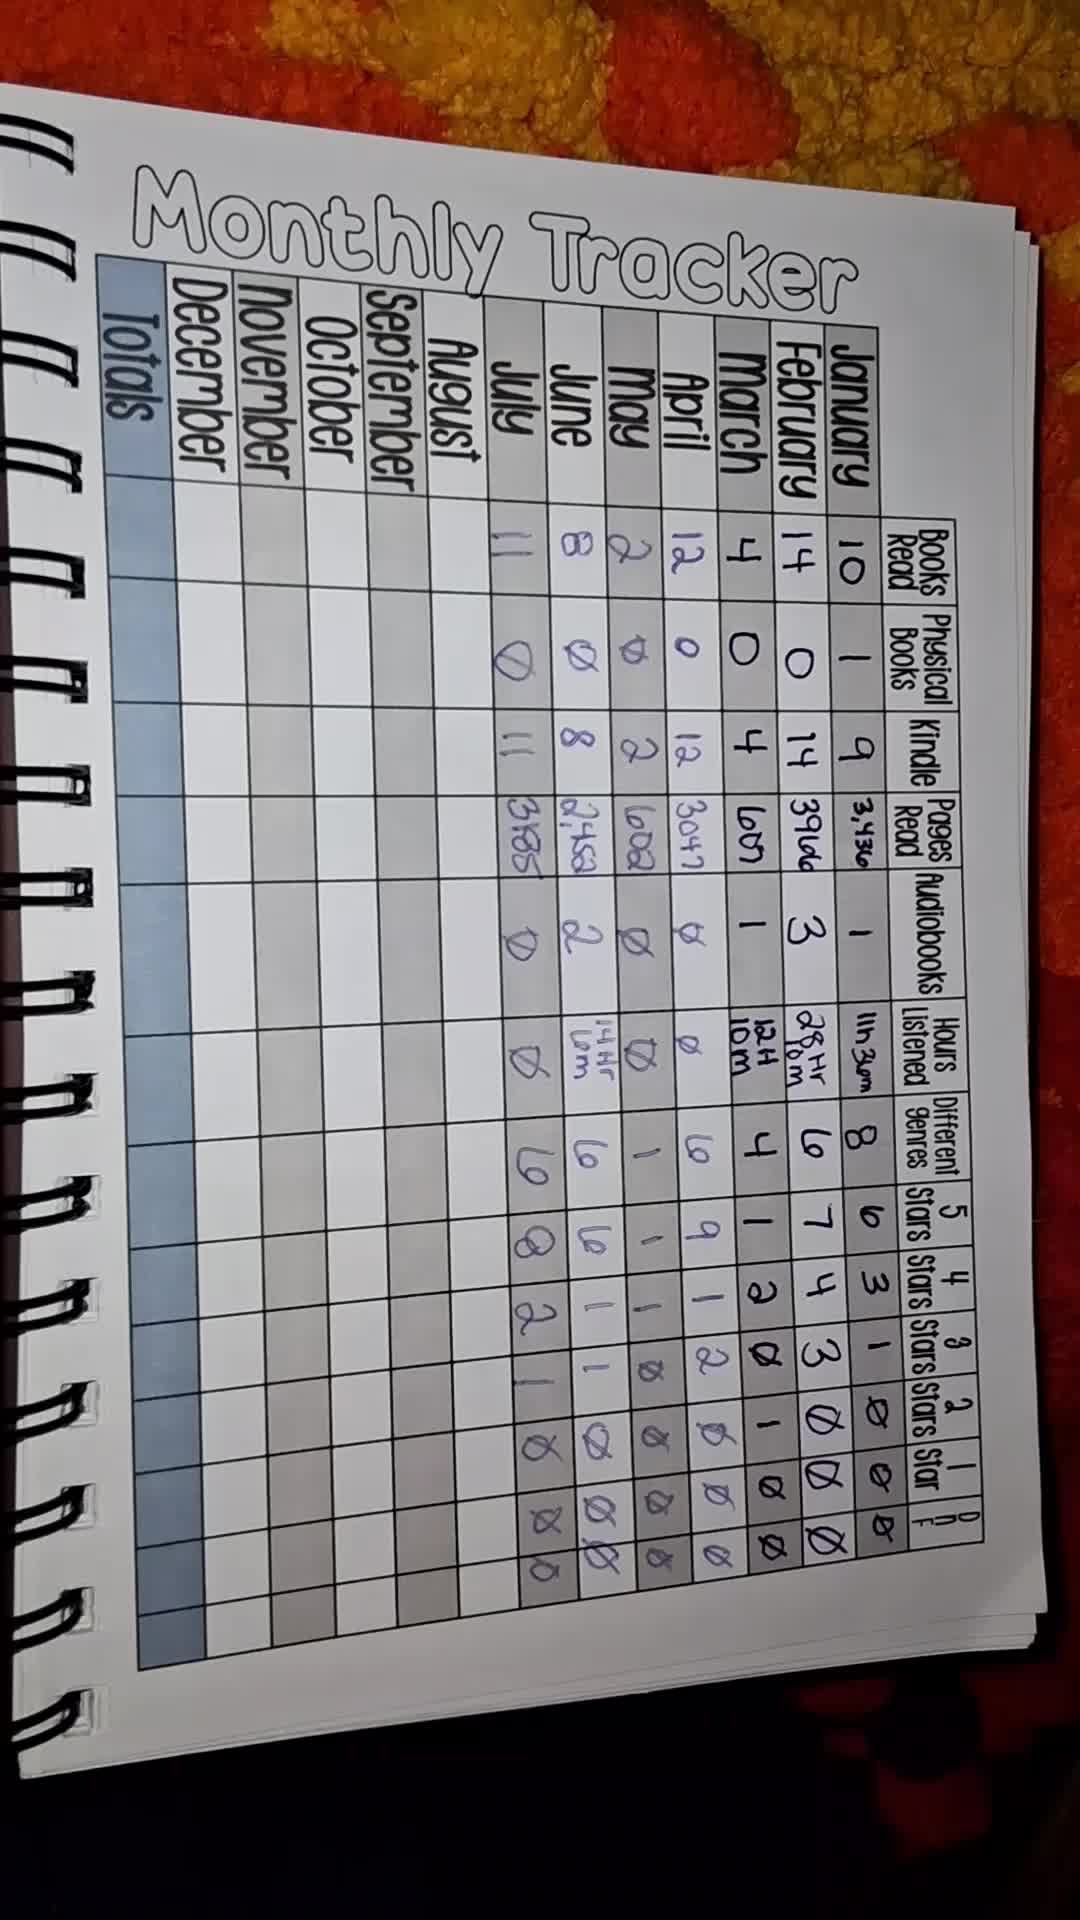 Monthly Tracker
Books Read Physical Books Kindle Pages Read Audiobooks Hours Listened Different genres 5 Stars 4 Stars 3 Stars 2 Stars 1 Star DNF
January 10 1 9 3,436 1 11h36m 8 6 3 1 0 0 0
February 14 0 14 3966 3 28Hr 10m 6 7 4 3 0 0 0
March 4 0 4 607 1 12H 10m 4 1 2 0 1 0 0
April 12 0 12 3047 0 0 6 9 1 2 0 0 0
May 2 0 2 602 0 0 1 1 1 0 0 0 0
June 8 0 8 2,452 2 14Hr 6 6 1 1 0 0 0
July 11 0 11 0 0 6 8 2 1 0 0 0
August
September
October
November
December
Totals